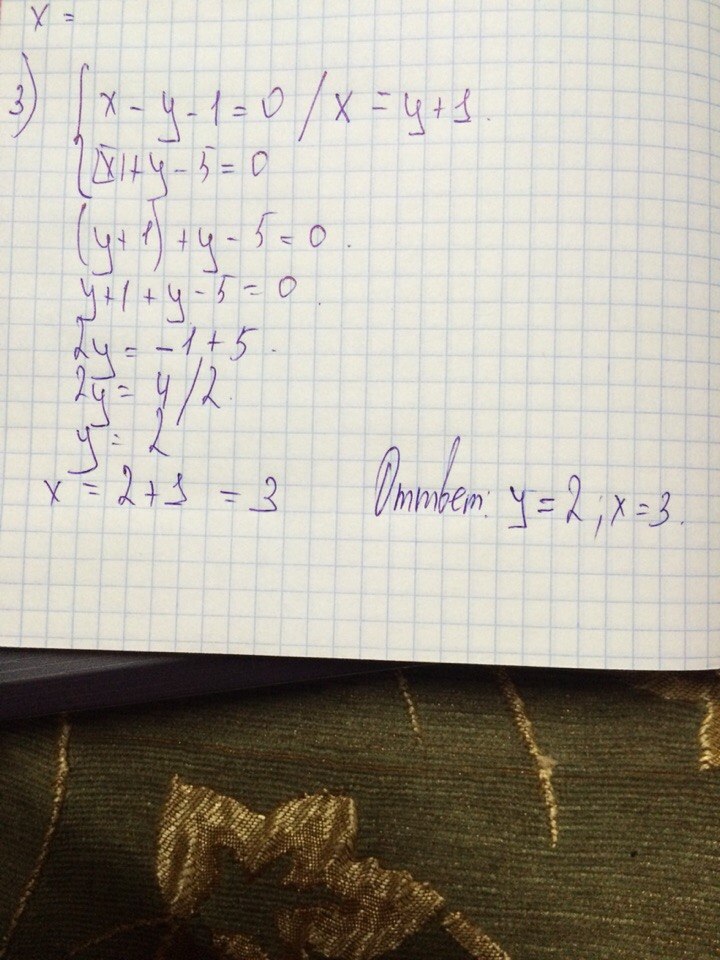 x =
3) { x - y - 1 = 0 / x = y + 1.
x + y - 5 = 0
(y + 1) + y - 5 = 0.
y + 1 + y - 5 = 0.
2y = -1 + 5.
2y = 4 / 2.
y = 2
x = 2 + 1 = 3 Ответ: y = 2; x = 3.